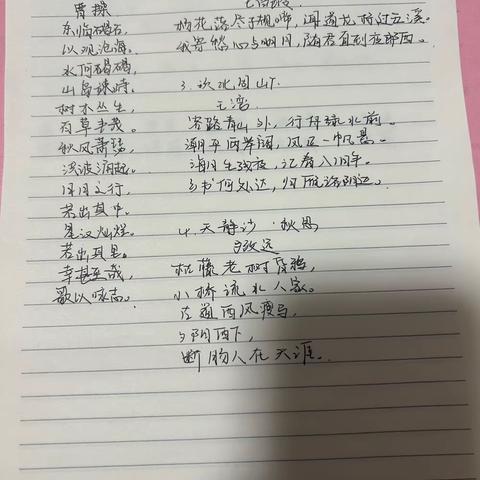 曹操
东临碣石,
以观沧海。
水何碣碣,
山岛竦峙。
树木丛生,
百草丰茂。
秋风萧瑟,
洪波涌起。
日月之行,
若出其中。
星汉灿烂,
若出其里。
幸甚至哉,
歌以咏志。
杨花落尽子规啼,闻道龙标过五溪。
我寄愁心与明月,随君直到夜郎西。
3. 次北固山下
王湾
客路青山外,行舟绿水前。
潮平两岸阔,风正一帆悬。
海日生残夜,江春入旧年。
乡书何处达,归雁洛阳边。
4. 天静沙·秋思
马致远
枯藤老树昏鸦,
小桥流水人家。
古道西风瘦马,
夕阳西下,
断肠人在天涯。